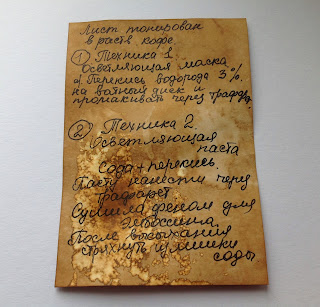 Лист тонирован
в раств кофе.
① Техника 1
Осветляющая маска
Перекись водорода 3%.
на ватный диск и
промакивать через трафар.
② Техника 2
Осветляющая
паста
Сода + перекись
Пасту нанести через
трафарет
Сушила феном для
эмбоссинга
После высыхания
стряхнуть излишки
соды